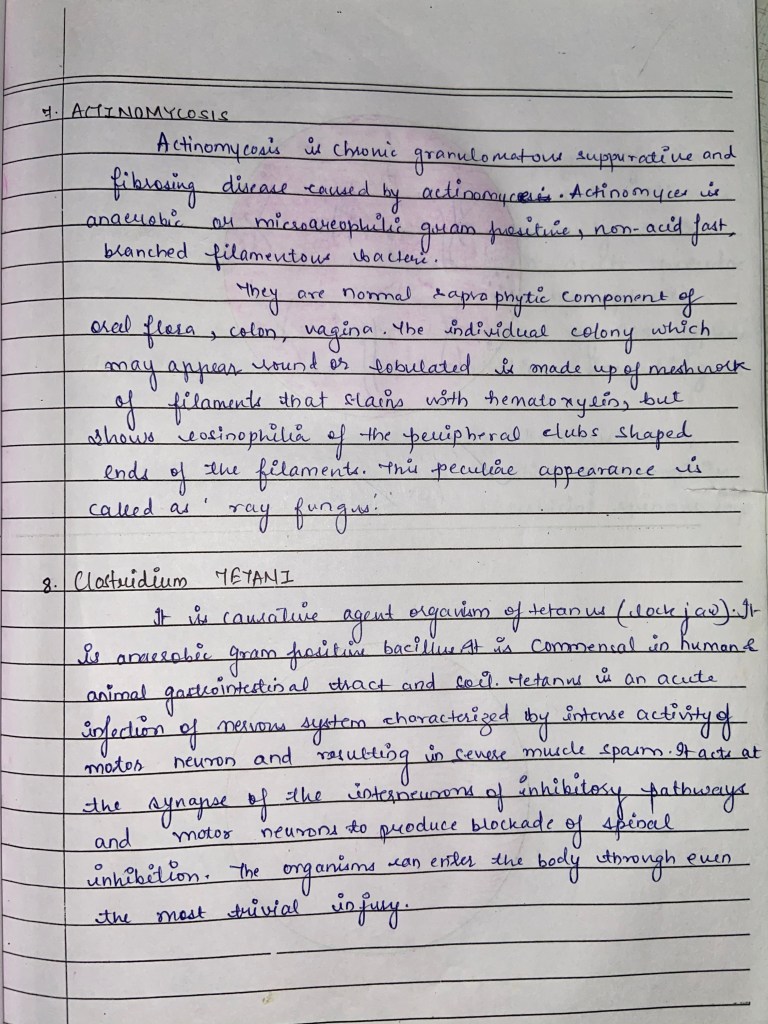 7. ACTINOMYCOSIS
Actinomycosis is chronic granulomatous suppurative and
fibrosing disease caused by actinomyces. Actinomyces is
anaerobic or microareophilic gram positive, non-acid fast,
branched filamentous bacteri.
They are normal saprophytic component of
oral flora, colon, vagina. The individual colony which
may appear round or lobulated is made up of meshwork
of filaments that stains with hematoxylin, but
shows eosinophilia of the peripheral clubs shaped
ends of the filaments. This peculiar appearance is
called as 'ray fungus'.
8. Clostridium TETANI
It is causative agent organism of tetanus (lock jaw). It
is anaerobic gram positive bacillus. It is commensal in human &
animal gastrointestinal tract and soil. Tetanus is an acute
infection of nervous system characterized by intense activity of
motor neuron and resulting in severe muscle spasm. It acts at
the synapse of the interneurons of inhibitory pathways
and motor neurons to produce blockade of spinal
inhibition. The organisms can enter the body through even
the most trivial injury.